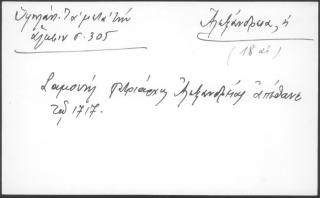 Ὑψηλάντ. Τὰ μετὰ τὴν
ἅλωσιν σ. 305
Ἀλεξάνδρεια, ἡ
(18 αἰ)
Σαμουὴλ πατριάρχης Ἀλεξανδρείας ἀπέθανε
τοῦ 1717.